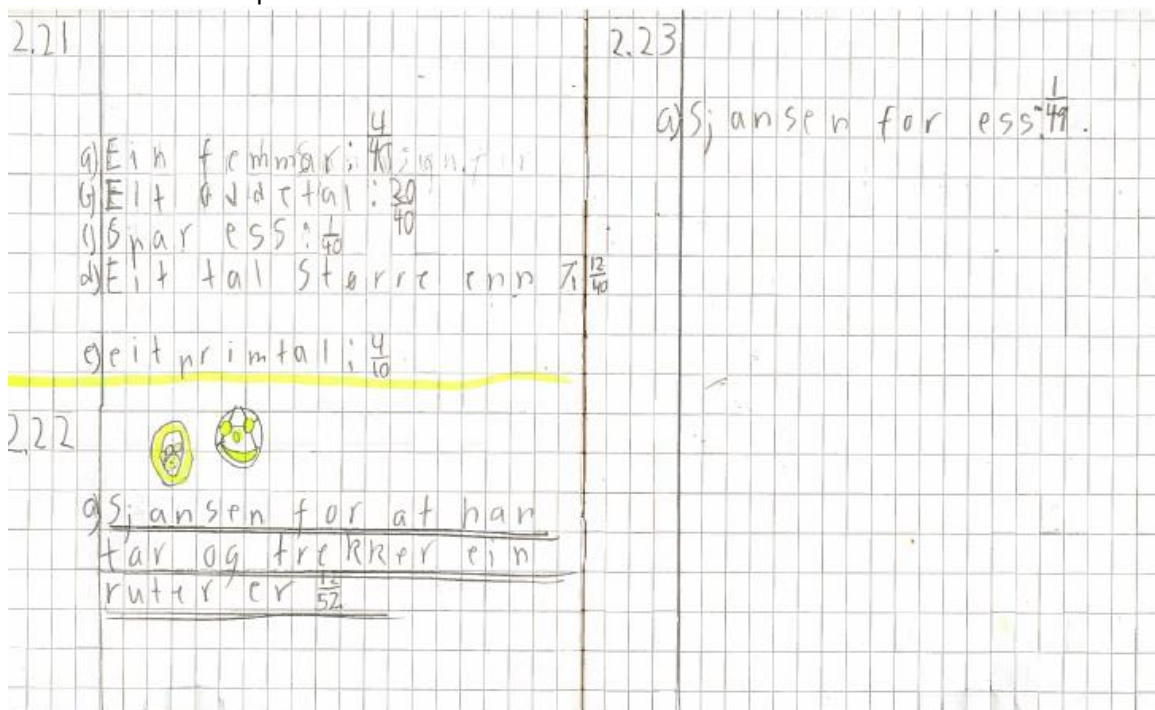 2.21
a) Ein femmar: 4/40
b) Eit oddetal: 20/40
c) Spar ess: 1/40
d) Eit tal større enn 7: 12/40
e) eit primtal: 4/10
2.22
a) Sjansen for at han
tar og trekker ein
ruter er 12/52
2.23
a) Sjansen for ess: 1/49.